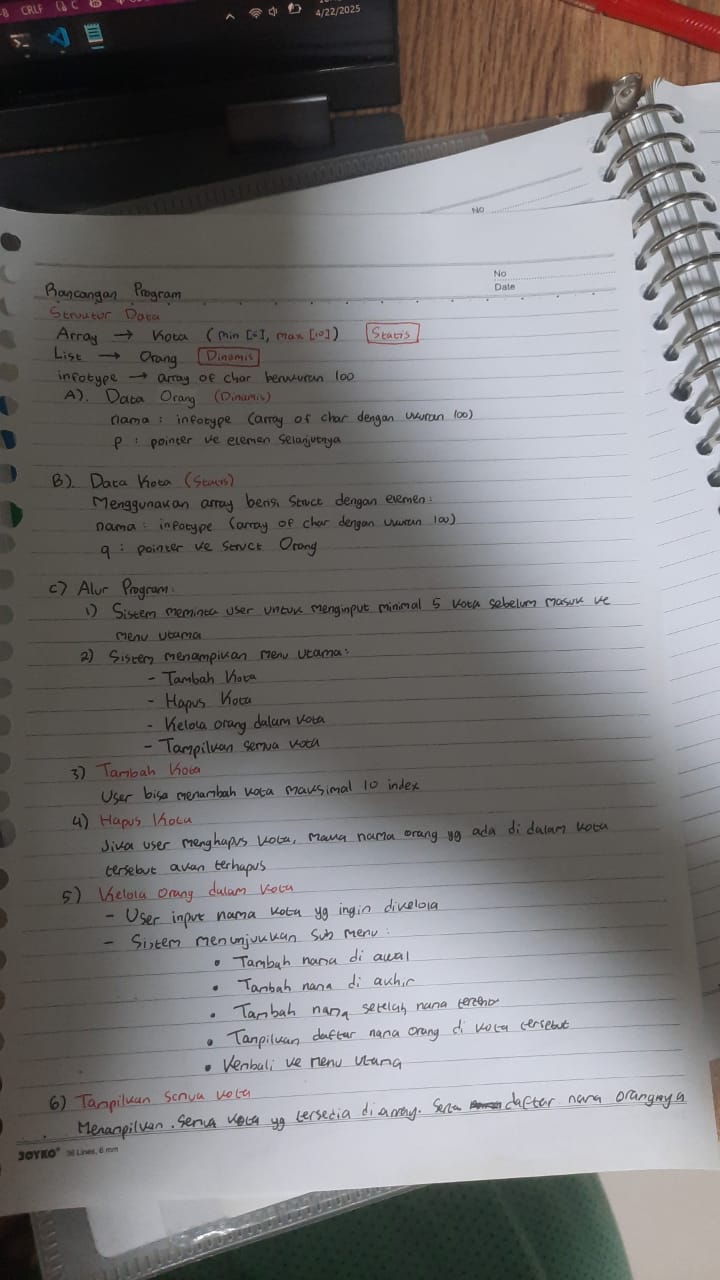 CRLF
4/22/2025
No
No
Date
Rancangan Program
Struktur Data
Array → Kota (Min [5], Max [10]) Statis
List → Orang Dinamis
infotype → array of char berukuran 100
A). Data Orang (Dinamis)
nama : infotype (array of char dengan ukuran 100)
P : pointer ke elemen selanjutnya
B). Data Kota (Statis)
Menggunakan array berisi Struct dengan elemen:
nama : infotype (array of char dengan ukuran 100)
q : pointer ke Struct Orang
C) Alur Program:
1) Sistem meminta user untuk menginput minimal 5 kota sebelum masuk ke
menu utama
2) Sistem menampilkan menu utama:
- Tambah Kota
- Hapus Kota
- Kelola orang dalam kota
- Tampilkan semua kota
3) Tambah Kota
User bisa menambah kota maksimal 10 index
4) Hapus Kota
Jika user menghapus kota, maka nama orang yg ada di dalam kota
tersebut akan terhapus
5) Kelola Orang dalam Kota
- User input nama kota yg ingin dikelola
- Sistem menunjukkan sub menu :
• Tambah nama di awal
• Tambah nama di akhir
• Tambah nama setelah nama
• Tampilkan daftar nama orang di kota tersebut
• Kembali ke menu utama
6) Tampilkan semua kota
Menampilkan semua kota yg tersedia di array. Serta daftar nama orangnya
JOYKO 36 Lines, 6 mm